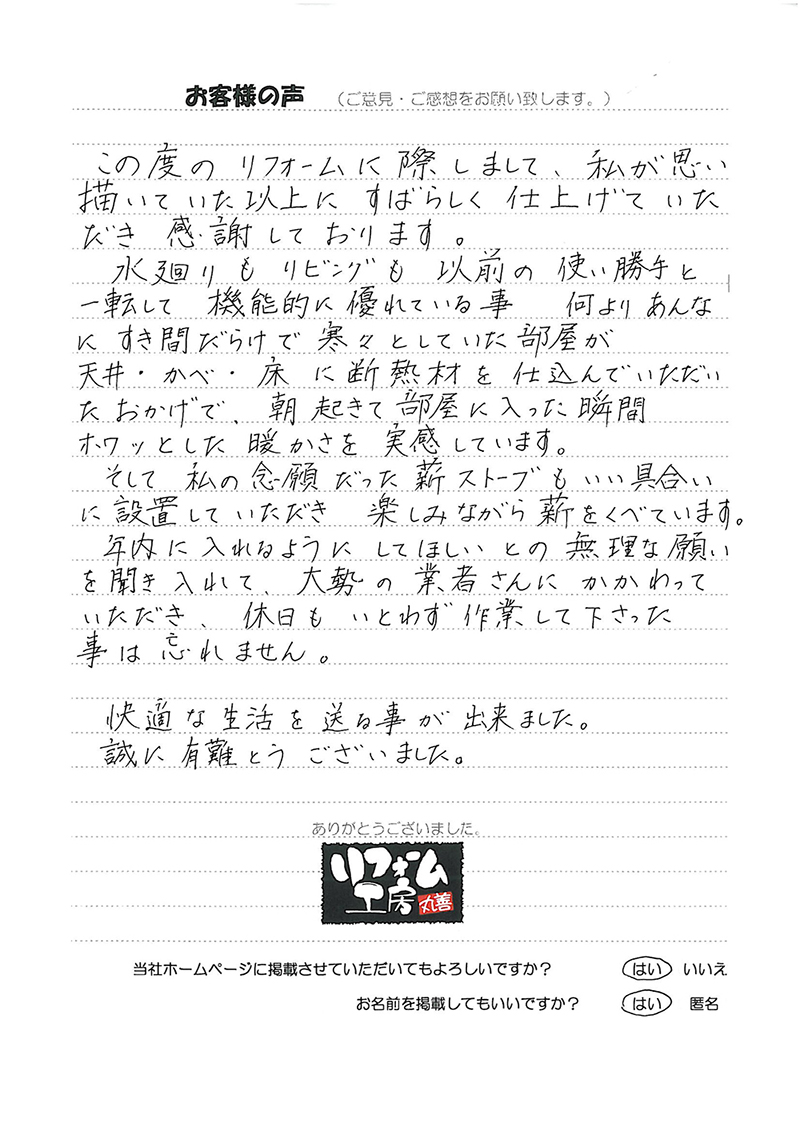 お客様の声 （ご意見・ご感想をお願い致します。）
この度の リフォームに 際しまして、私が思い
描いていた以上に すばらしく 仕上げていた
だき 感謝しております。
水廻りも リビングも 以前の 使い勝手と
一転して 機能的に優れている事 何より あんな
に すき間だらけで 寒々としていた部屋が
天井・かべ・床 に断熱材を 仕込んでいただい
たおかげで、朝起きて部屋に入った瞬間
ホワッとした 暖かさを 実感しています。
そして 私の念願だった薪ストーブもいい具合い
に設置していただき 楽しみながら薪をくべています。
年内に入れるように してほしい との 無理な願い
を聞き入れて、大勢の業者さんに かかわって
いただき、休日も いとわず作業して下さった
事は 忘れません。
快適な生活を送る事が出来ました。
誠に有難とう ございました。
ありがとうございました。
リフォーム
工房 丸善
当社ホームページに掲載させていただいてもよろしいですか？ はい いいえ
お名前を掲載してもいいですか？ はい 匿名